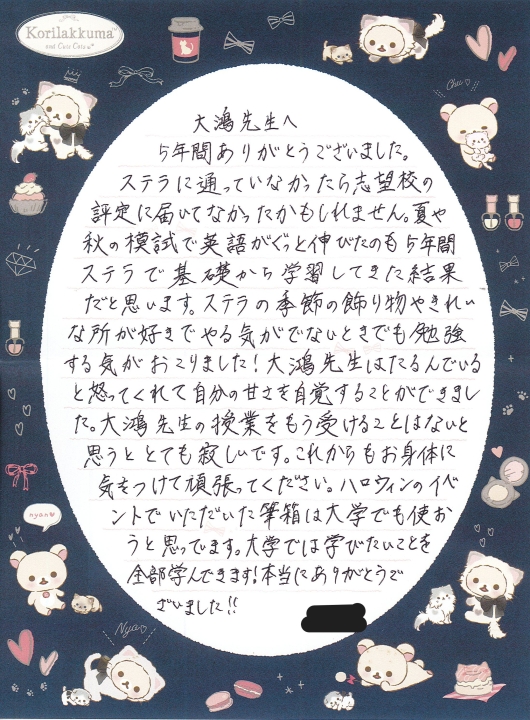 Korilakkuma™
and Cute Cats
Chu♡
大鴻先生へ
5年間ありがとうございました。
ステラに通っていなかったら志望校の
評定に届いてなかったかもしれません。夏や
秋の模試で英語がぐっと伸びたのも5年間
ステラで基礎から学習してきた結果
だと思います。ステラの季節の飾り物やきれい
な所が好きでやる気がでないときでも勉強
する気がおこりました!大鴻先生はたるんでいる
と怒ってくれて自分の甘さを自覚することができまし
た。大鴻先生の授業をもう受けることはないと
思うととても寂しいです。これからもお身体に
気をつけて頑張ってください。ハロウィンのイベ
ントでいただいた筆箱は大学でも使お
うと思ってます。大学では学びたいことを
全部学んできます!本当にありがとうご
ざいました!!
nyan♡
Nya♡